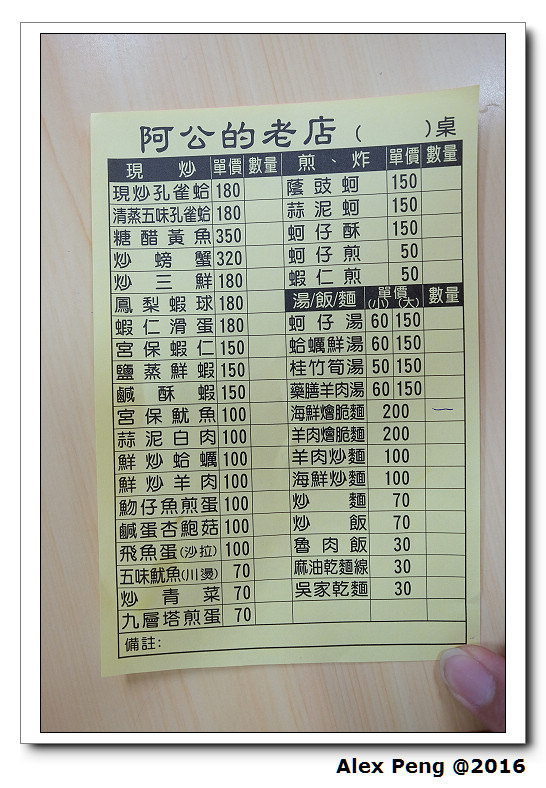 阿公的老店 (    )桌
現 炒 單價 數量
現炒孔雀蛤 180
清蒸五味孔雀蛤 180
糖醋黃魚 350
炒螃蟹 320
炒三鮮 180
鳳梨蝦球 180
蝦仁滑蛋 180
宮保蝦仁 150
鹽蒸鮮蝦 150
鹹酥蝦 150
宮保魷魚 100
蒜泥白肉 100
鮮炒蛤蠣 100
鮮炒羊肉 100
魩仔魚煎蛋 100
鹹蛋杏鮑菇 100
飛魚蛋(沙拉) 100
五味魷魚(川燙) 70
炒青菜 70
九層塔煎蛋 70
煎、炸 單價 數量
蔭豉蚵 150
蒜泥蚵 150
蚵仔酥 150
蚵仔煎 50
蝦仁煎 50
湯/飯/麵 單價 (小) (大) 數量
蚵仔湯 60 150
蛤蠣鮮湯 60 150
桂竹筍湯 50 150
藥膳羊肉湯 60 150
海鮮燴脆麵 200 一
羊肉燴脆麵 200
羊肉炒麵 100
海鮮炒麵 100
炒麵 70
炒飯 70
魯肉飯 30
麻油乾麵線 30
吳家乾麵 30
備註:
Alex Peng @2016